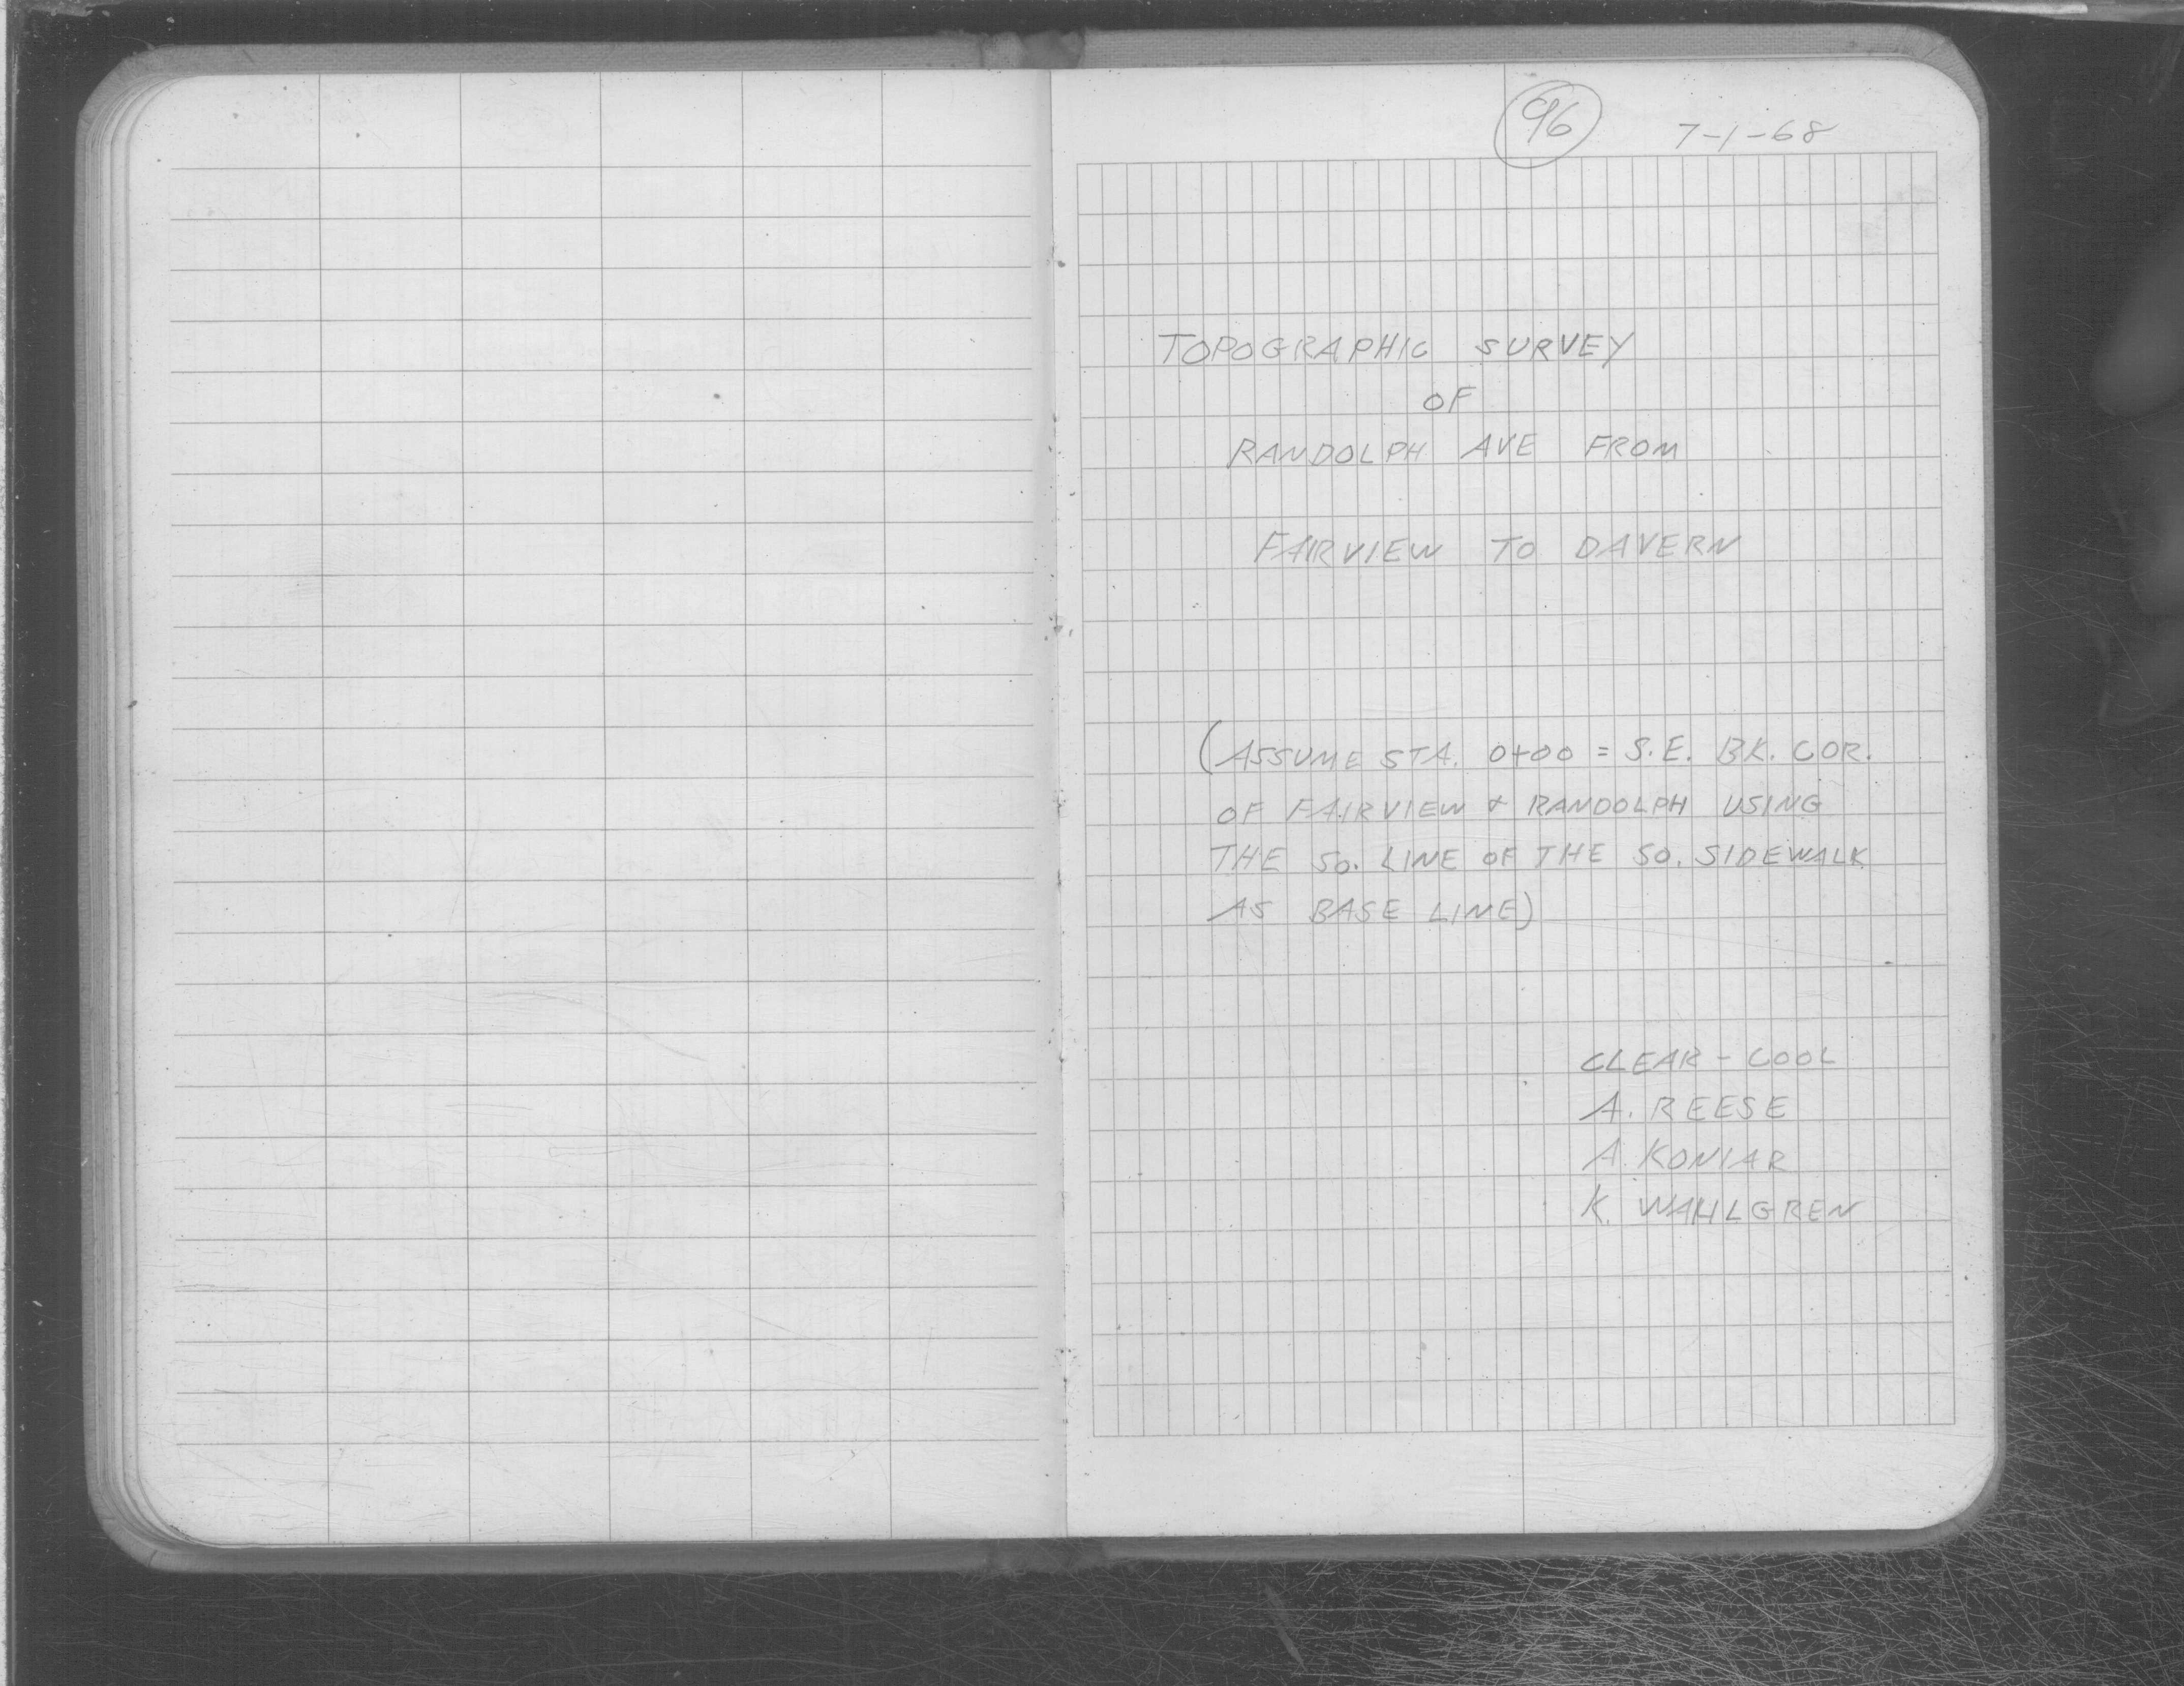 96 7-1-68
TOPOGRAPHIC SURVEY
OF
RANDOLPH AVE FROM
FAIRVIEW TO DAVERN
(ASSUME STA. 0+00 = S.E. BK. COR.
OF FAIRVIEW & RANDOLPH USING
THE SO. LINE OF THE SO. SIDEWALK
AS BASE LINE)
CLEAR - COOL
A. REESE
A. KONIAR
K. WAHLGREN